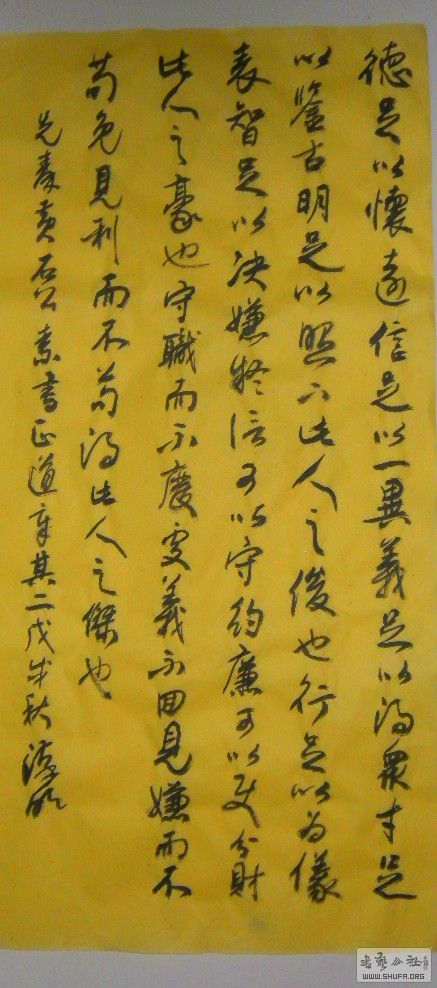 德足以懷遠信足以一異義足以得眾才足
以鑒古明足以照下此人之俊也行足以為儀
表智足以決嫌疑信可以守約廉可以使分財
此人之豪也守職而不廢處義不回見嫌而不
苟免見利而不苟得此人之傑也
先秦黃石公素書正道章其二戊戌秋
WWW.SHUFA.ORG